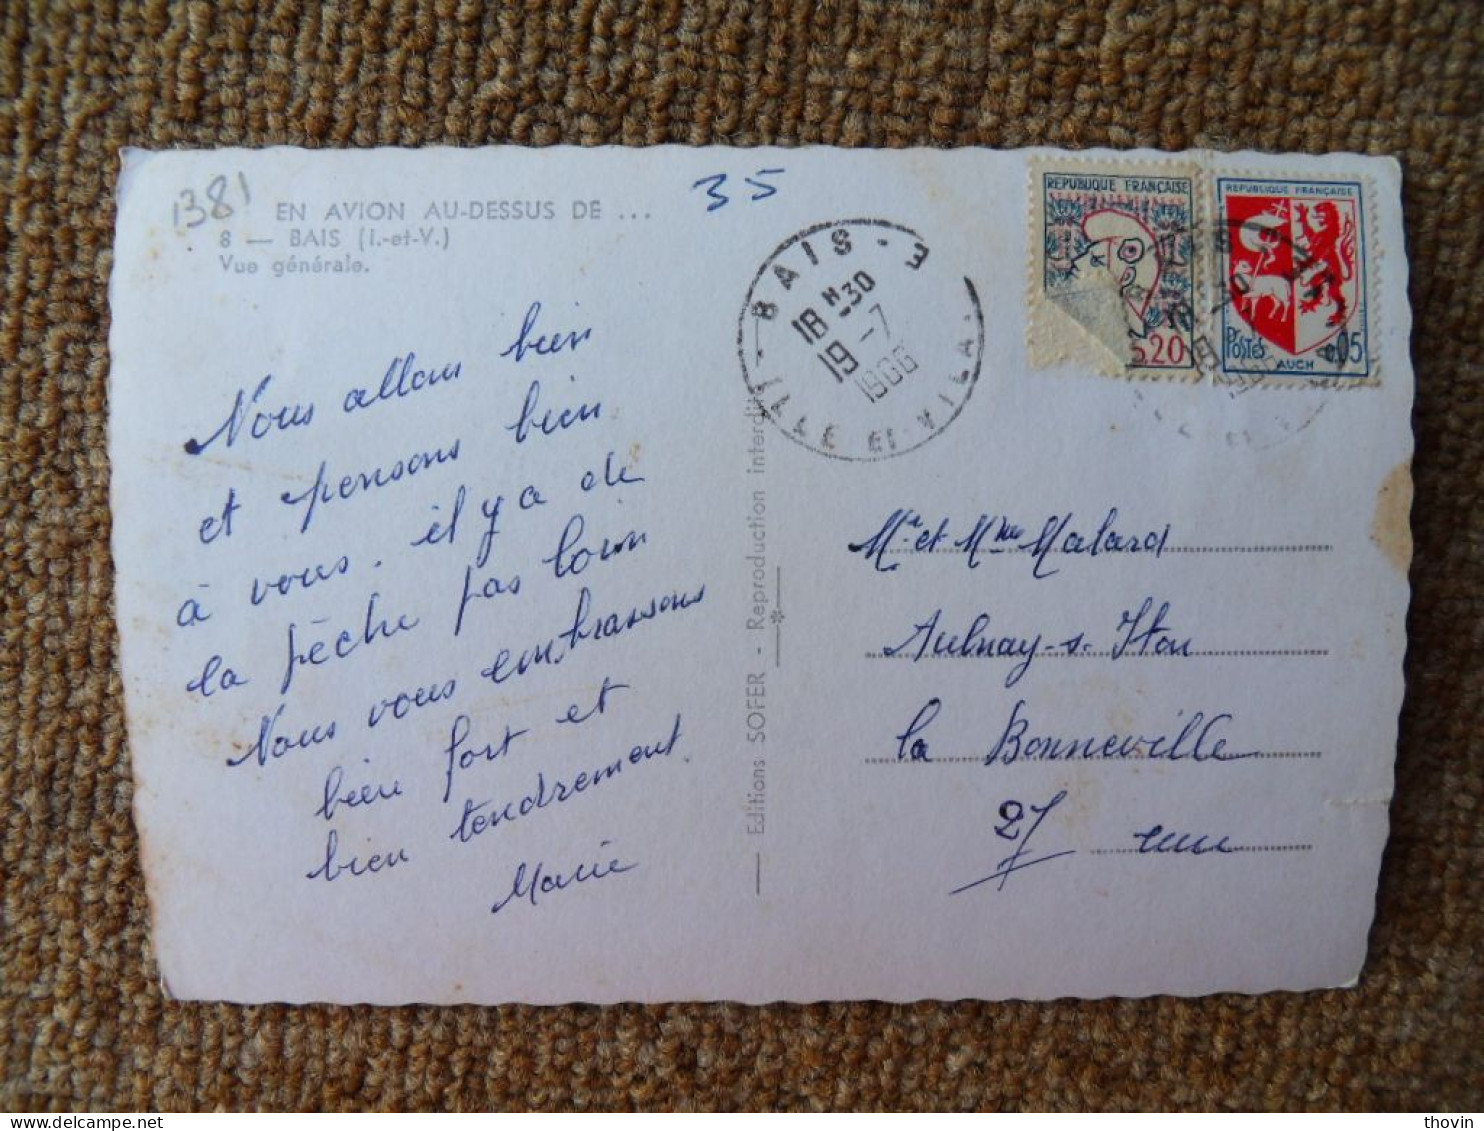 1381
EN AVION AU-DESSUS DE ...
8 — BAIS (I.-et-V.)
Vue générale.
35
Nous allons bien
et pensons bien
à vous. il y a de
la pêche pas loin
Nous vous embrassons
bien fort et
bien tendrement.
Marie
Editions SOFER - Reproduction interdite
BAIS - 3
18 H 30
19 - 7
1966
ILLE ET VILA.
REPUBLIQUE FRANÇAISE
0.20
REPUBLIQUE FRANÇAISE
POSTES
0.05
AUCH
Mr et Mme Malard
Aulnay-s-Iton
la Bonneville
27 eure
thovin